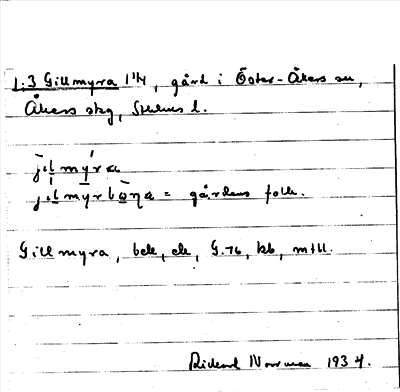 1:3 Gillmyra 1 1/4, gård i Öster-Åkers sn,
Åkers skg, Sthlms l.
jilmýra
jilmyrboŋa = gårdens folk.
Gillmyra, bek, ek, G.76, kb, mtll.
Rickard Norrman 1934.